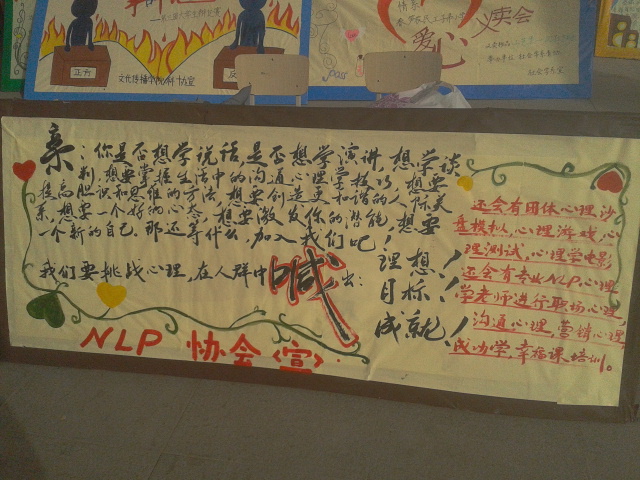 正方
文化传播学院
协宣
义卖会
爱心
亲:你是否想学说话,是否想学演讲,想学谈
判,想要掌握生活中的沟通心理学技巧,想要
提高胆识和思维的方法,想要创造更和谐的人际关
系,想要一个好的心态,想要激发你的潜能,想要
一个新的自己.那还等什么,加入我们吧!
我们要挑战心理,在人群中喊出:
理想!
目标!
成就!
NLP 协会<宣>
还会有团体心理沙
盘模拟,心理游戏,心
理测试,心理学电影
还会有专业NLP心理
学老师进行职场心理
沟通心理,营销心理,
成功学,幸福课培训。